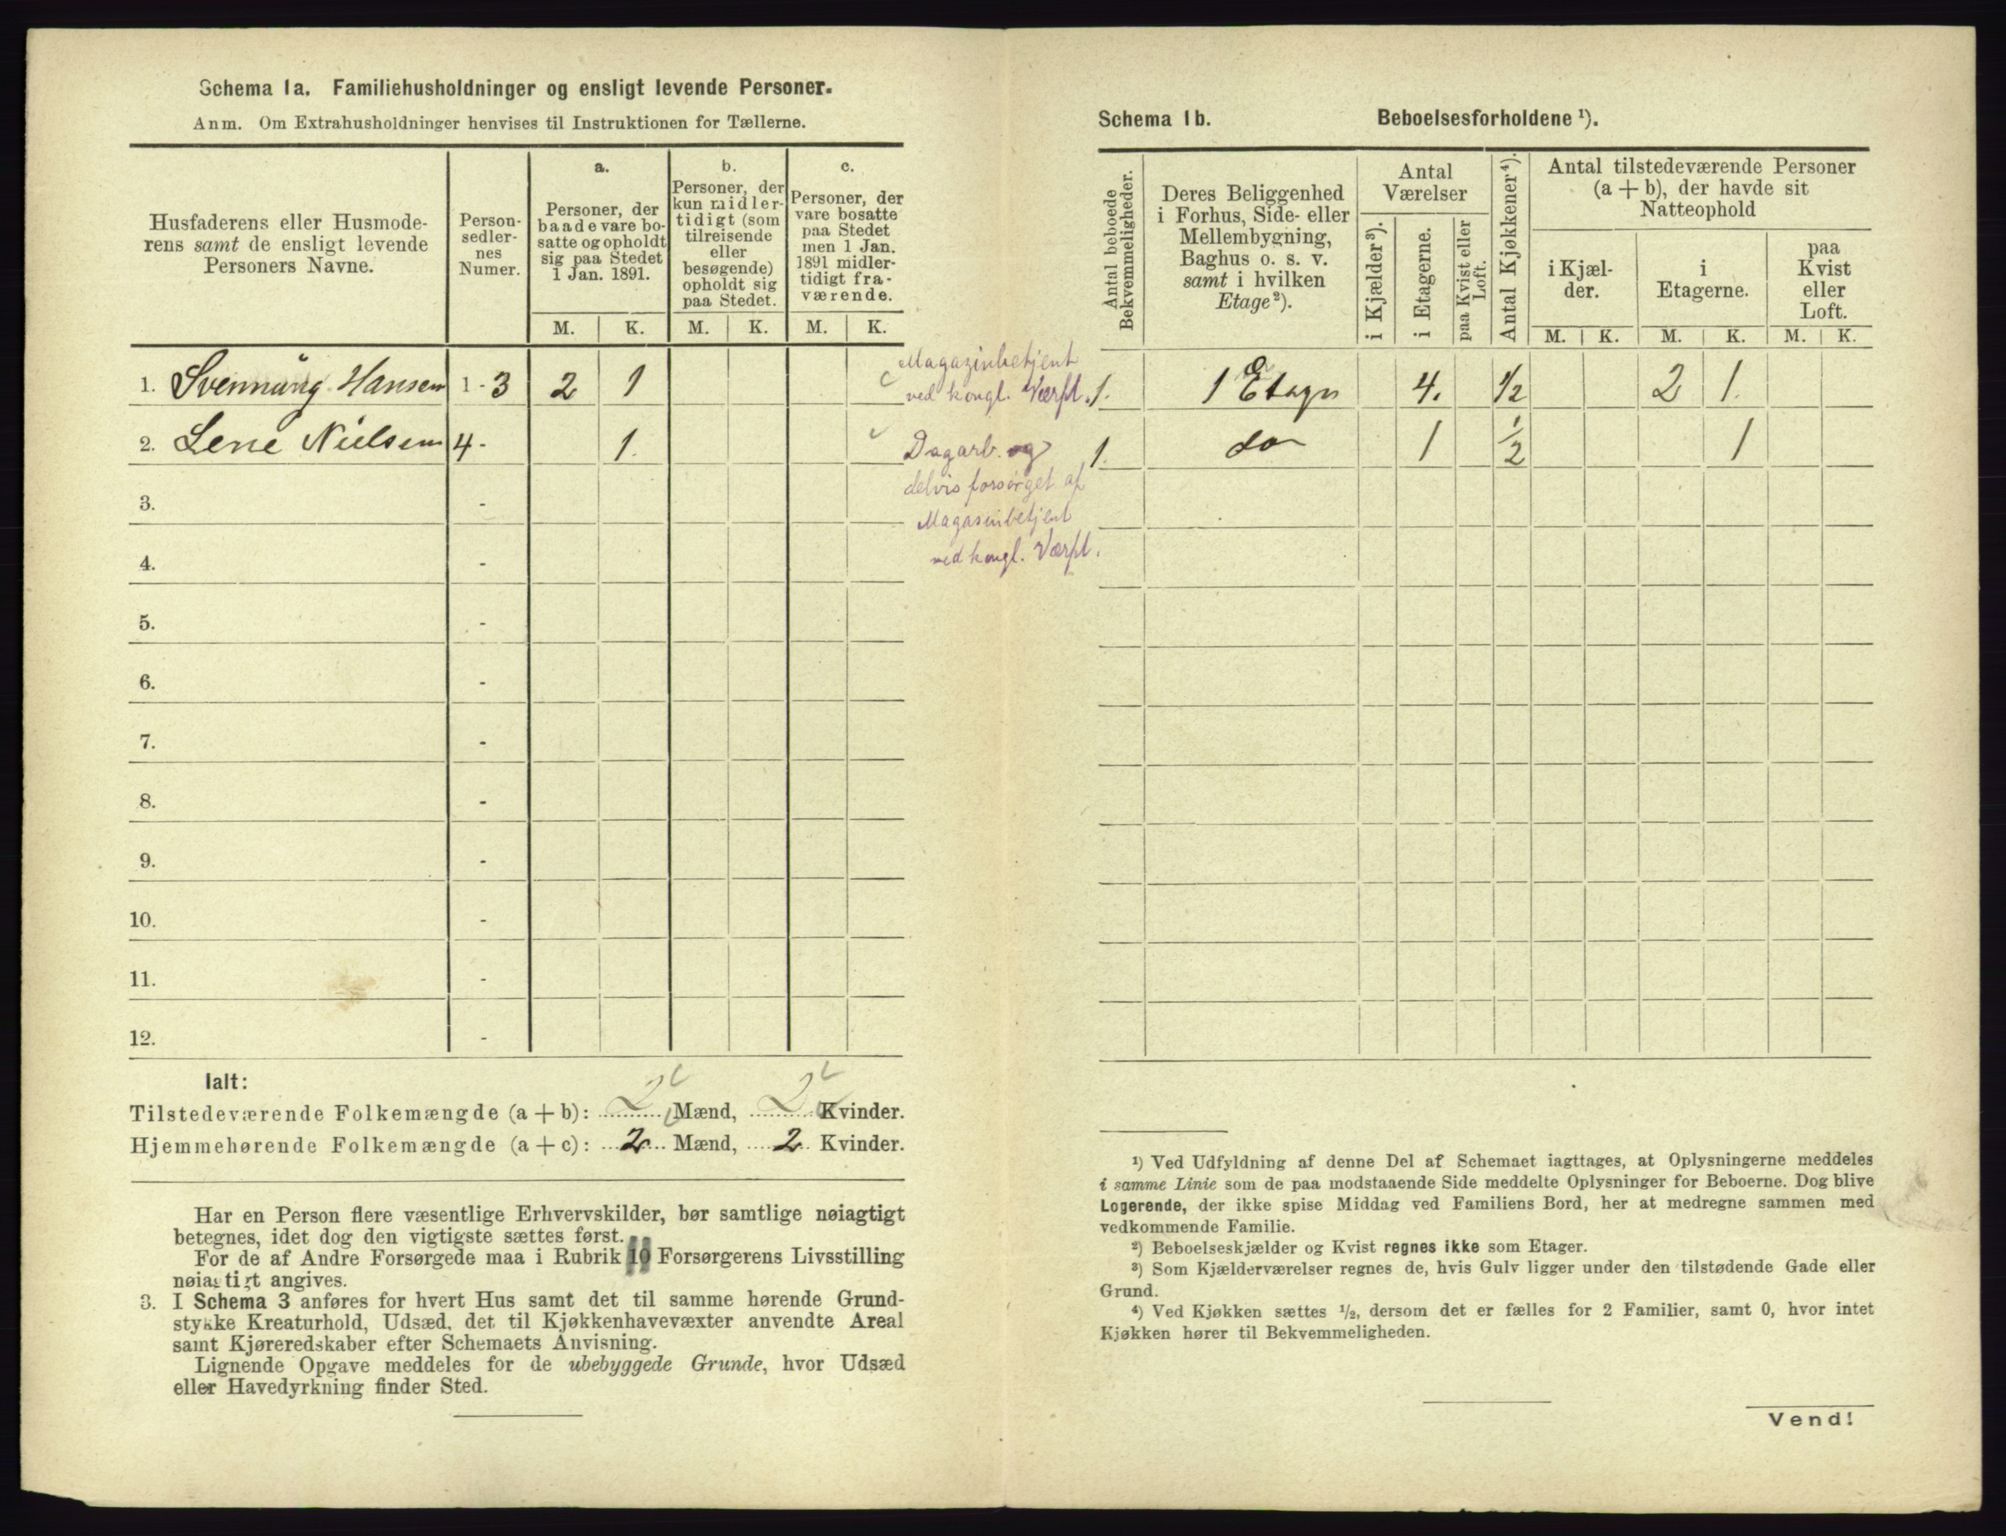 Schema 1a. Familiehusholdninger og ensligt levende Personer.
Anm. Om Extrahusholdninger henvises til Instruktionen for Tællerne.
Husfaderens eller Husmoderens samt de ensligt levende Personers Navne.
Personsedlernes Numer.
a.
Personer, der baade vare bosatte og opholdt sig paa Stedet 1 Jan. 1891.
b.
Personer, der kun midlertidigt (som tilreisende eller besøgende) opholdt sig paa Stedet.
c.
Personer, der vare bosatte paa Stedet men 1 Jan. 1891 midlertidigt fraværende.
M. K. M. K. M. K.
1. Svennung Hansen 1-3 2 1
2. Lene Nielsen 4- 1.
3. -
4. -
5. -
6. -
7. -
8. -
9. -
10. -
11. -
12. -
Magazinbetjent
ved kongl. Værft.
Dagarb. og
delvis forsørget af
Magasinbetjent
ved kongl. Værft.
Ialt:
Tilstedeværende Folkemængde (a + b): 2 Mænd, 2 Kvinder.
Hjemmehørende Folkemængde (a + c): 2 Mænd, 2 Kvinder.
Har en Person flere væsentlige Erhvervskilder, bør samtlige nøiagtigt
betegnes, idet dog den vigtigste sættes først.
For de af Andre Forsørgede maa i Rubrik 10 Forsørgerens Livsstilling
nøiagtigt angives.
3. I Schema 3 anføres for hvert Hus samt det til samme hørende Grund-
stykke Kreaturhold, Udsæd, det til Kjøkkenhavevæxter anvendte Areal
samt Kjøreredskaber efter Schemaets Anvisning.
Lignende Opgave meddeles for de ubebyggede Grunde, hvor Udsæd
eller Havedyrkning finder Sted.
Schema 1b. Beboelsesforholdene ¹).
Antal beboede Bekvemmeligheder.
Deres Beliggenhed i Forhus, Side- eller Mellembygning, Baghus o. s. v. samt i hvilken Etage²).
Antal Værelser
i Kjælder³).
i Etagerne.
paa Kvist eller Loft.
Antal Kjøkkener⁴).
Antal tilstedeværende Personer (a + b), der havde sit Natteophold
i Kjælder.
i Etagerne.
paa Kvist eller Loft.
M. K. M. K. M. K.
1. 1 Etage 4. 1/2 2 1.
1. do 1 1/2 1
¹) Ved Udfyldning af denne Del af Schemaet iagttages, at Oplysningerne meddeles
i samme Linie som de paa modstaaende Side meddelte Oplysninger for Beboerne. Dog blive
Logerende, der ikke spise Middag ved Familiens Bord, her at medregne sammen med
vedkommende Familie.
²) Beboelseskjælder og Kvist regnes ikke som Etager.
³) Som Kjælderværelser regnes de, hvis Gulv ligger under den tilstødende Gade eller
Grund.
⁴) Ved Kjøkken sættes ½, dersom det er fælles for 2 Familier, samt 0, hvor intet
Kjøkken hører til Bekvemmeligheden.
Vend!